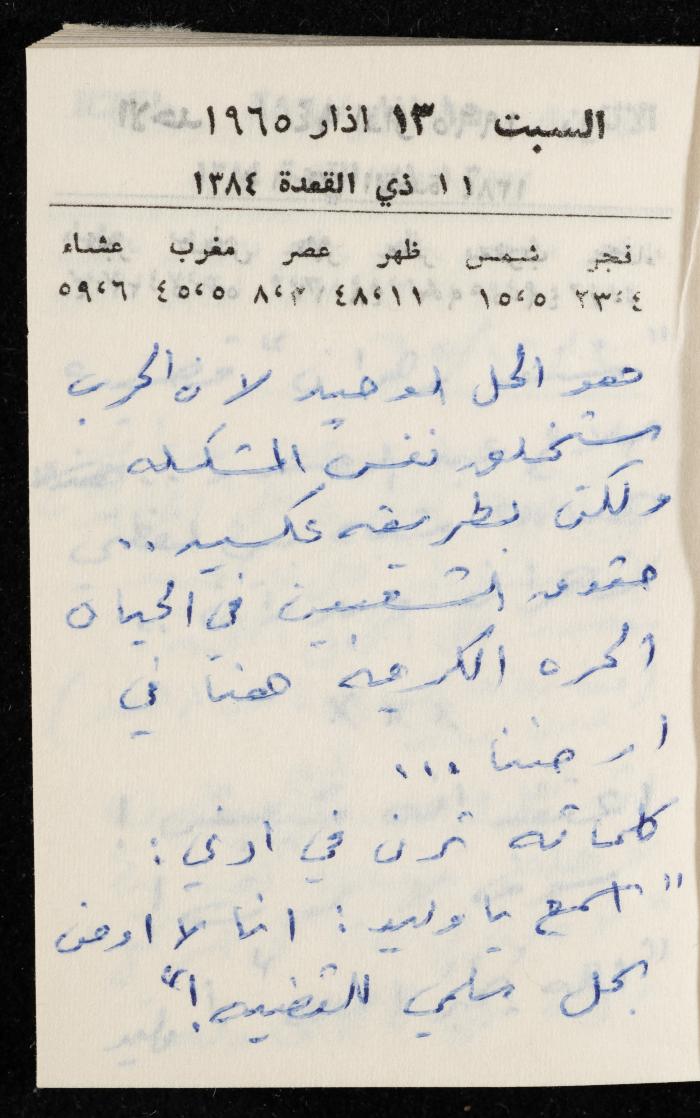 السبت ١٣ اذار ١٩٦٥
١١ ذي القعدة ١٣٨٤
فجر شمس ظهر عصر مغرب عشاء
٢٣،٤ ١٥،٥ ٤٨،١١ ٨،٣ ٤٥،٥ ٥٩،٦
هو الحل الوحيد لان الحرب
ستخلق نفس المشكله
ولكن بطريقه عكسيه..
حقوق الشعبين في الحياه
الحره الكريمه هنا في
ارضنا ...
كلماته ترن في اذني :
"اسمع يا وليد : انا لا اومن
بحل سلمي للقضيه!"